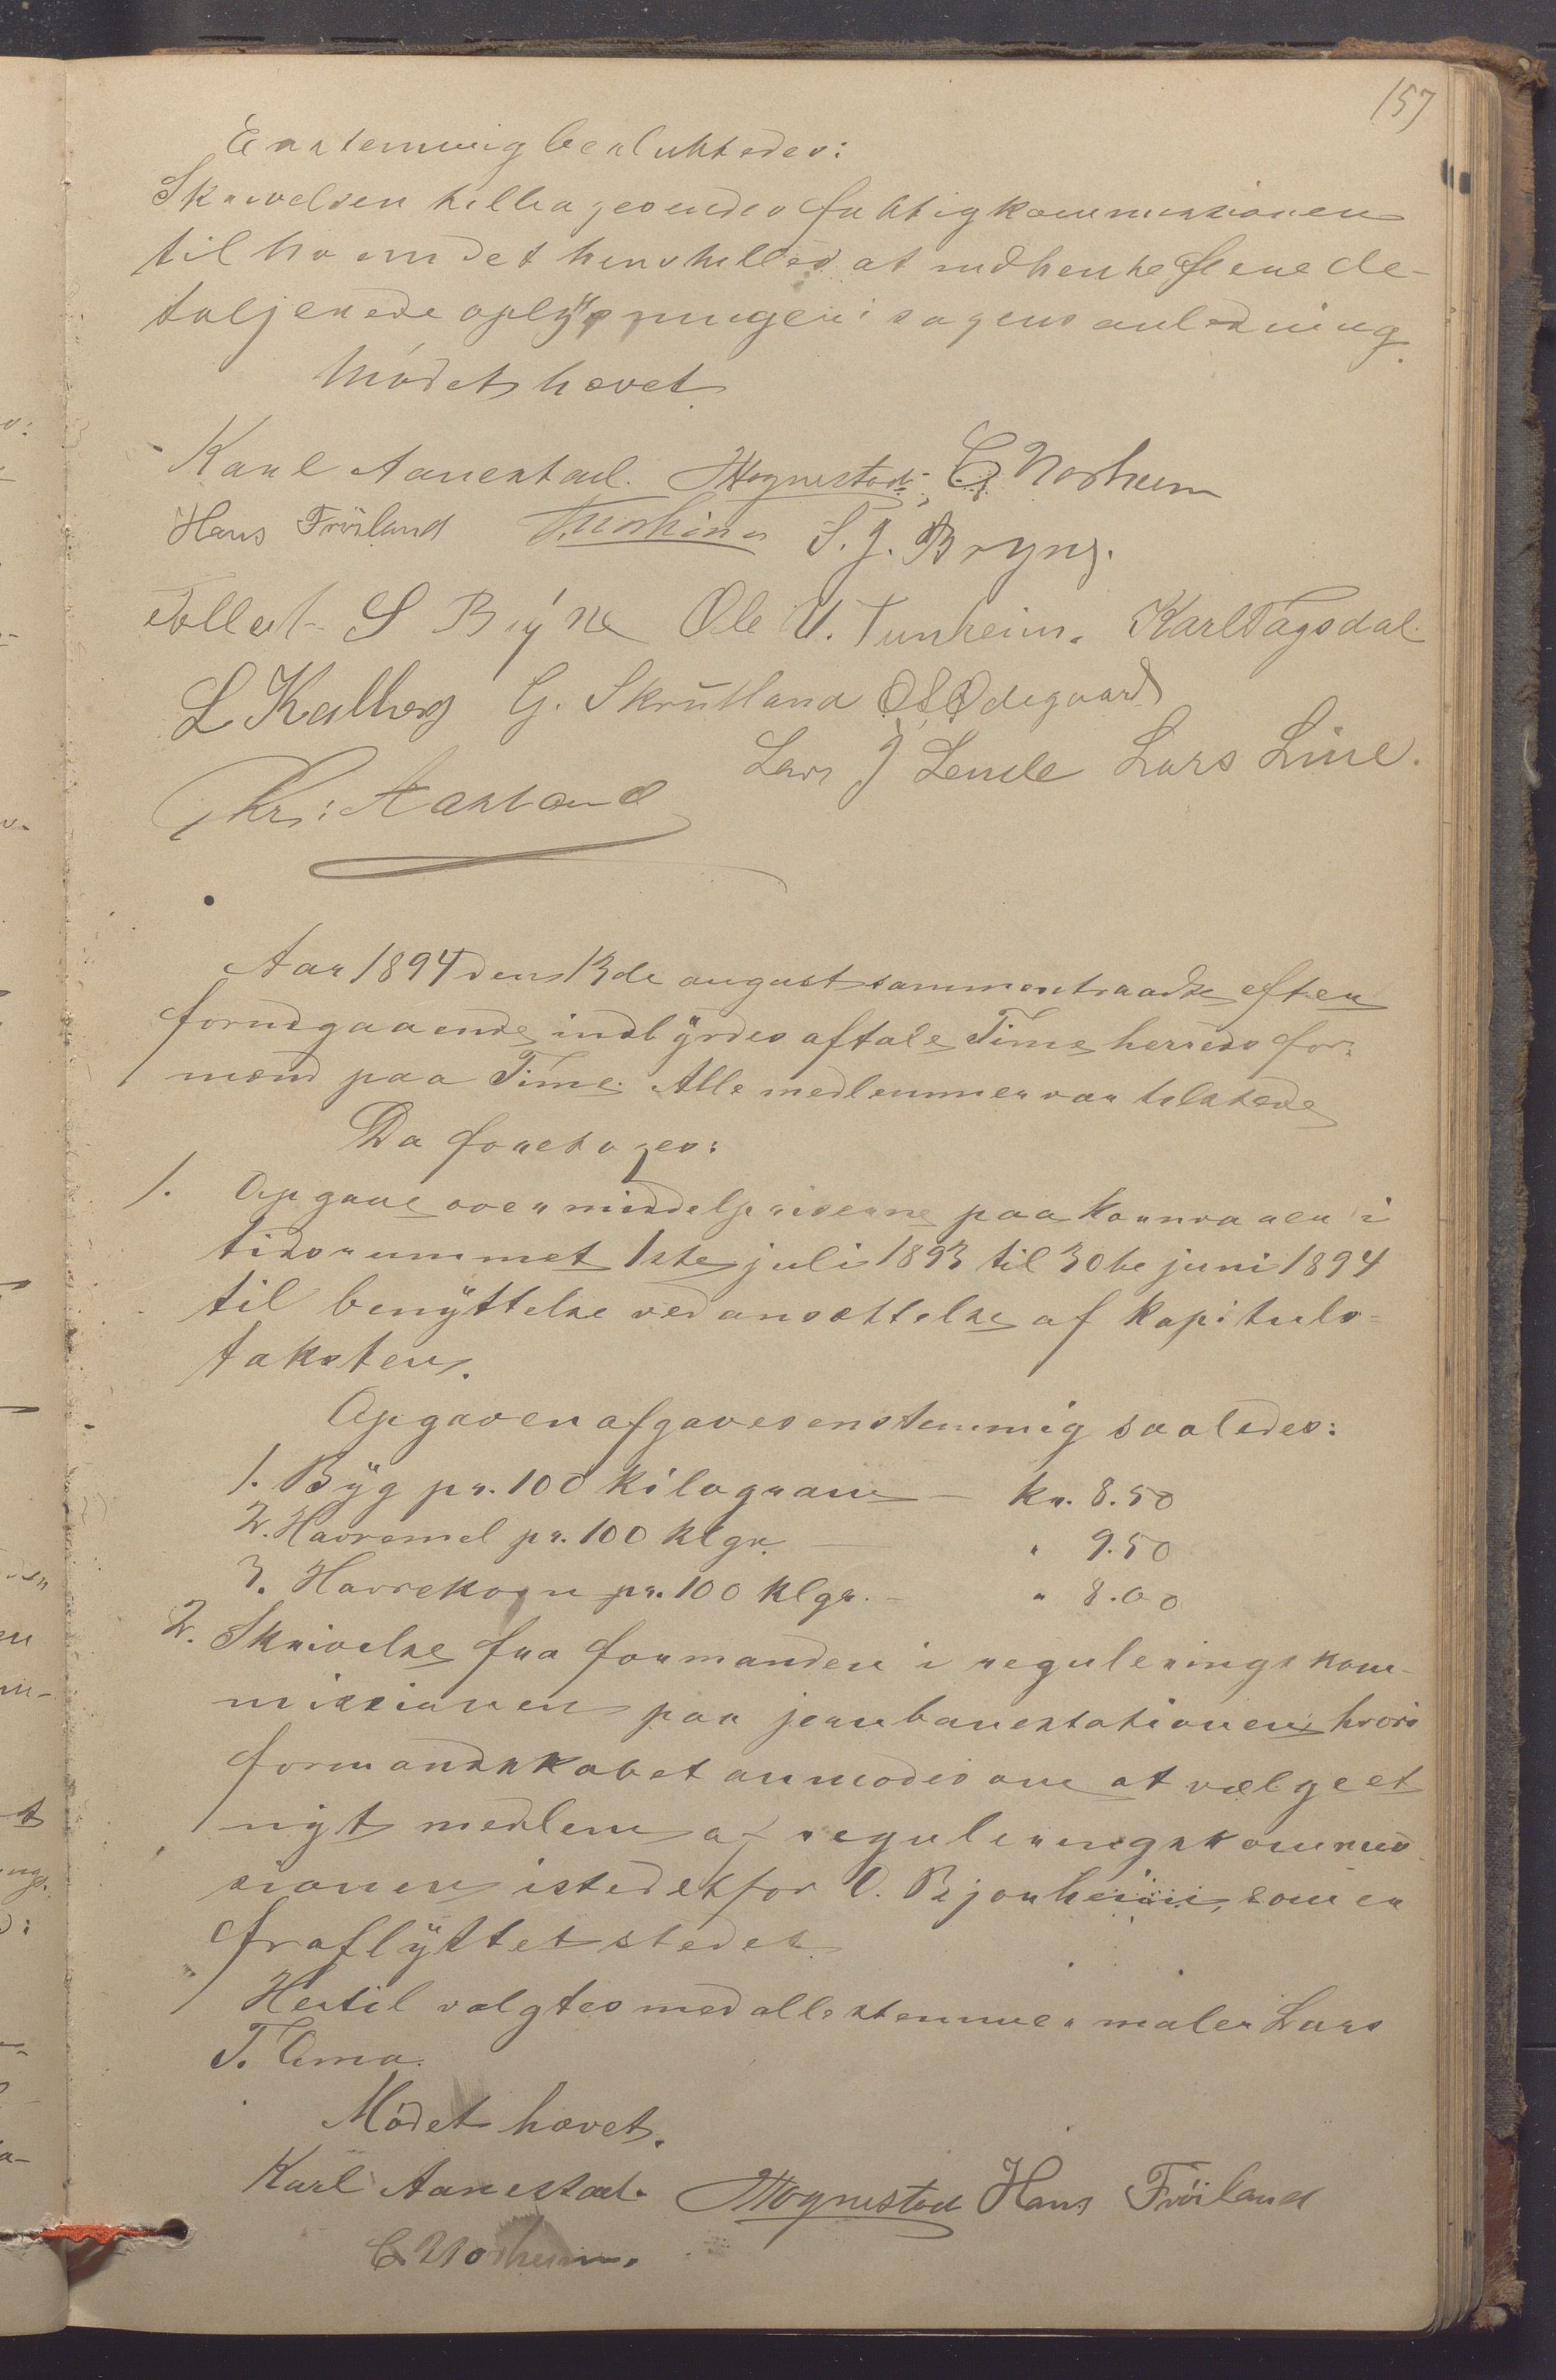 157
Enstemmig besluttedes:
Skrivelsen tilbagesendes fattigkommissionen
til hvem det henstilles at indhente flere de-
taljerede oplÿsninger i sagens anledning.
Mödet hævet.
Karl Aanestad. Hognestad. C Norheim
Hans Fröiland S. J. Bryne.
Tollef S Bryne Ole U. Tunheim. Karl Tagsdal.
L Kalberg G. Skrutland O S Ødegaard
Lars J Lende Lars Line.
Chr: Aarstad
Aar 1894 den 13de august sammentraadte efter
forudgaaende indbÿrdes aftale Time herreds for-
mænd paa Time. Alle medlemmer var tilstede
Da foretoges:
1. Opgave over middelpriserne paa kornvarer i
tidsrummet 1ste juli 1893 til 30te juni 1894
til benÿttelse ved ansættelse af kapituls-
taksten.
Opgaven afgaves enstemmig saaledes:
1. Bÿg pr. 100 kilogram — kr. 8.50
2. Havremel pr. 100 klgr. — " 9.50
3. Havrekorn pr. 100 klgr. - " 8.00
2. Skrivelse fra formanden i reguleringskom-
missionen paa jernbanestationen, hvori
formandskabet anmodes om at vælge et
nÿt medlem af reguleringskommis-
sionen istedetfor O. Bjorheim, som er
fraflÿttet stedet.
Hertil valgtes med alle stemmer maler Lars
T. Ama.
Mödet hævet.
Karl Aanestad. Hognestad Hans Fröiland
C. Norheim.